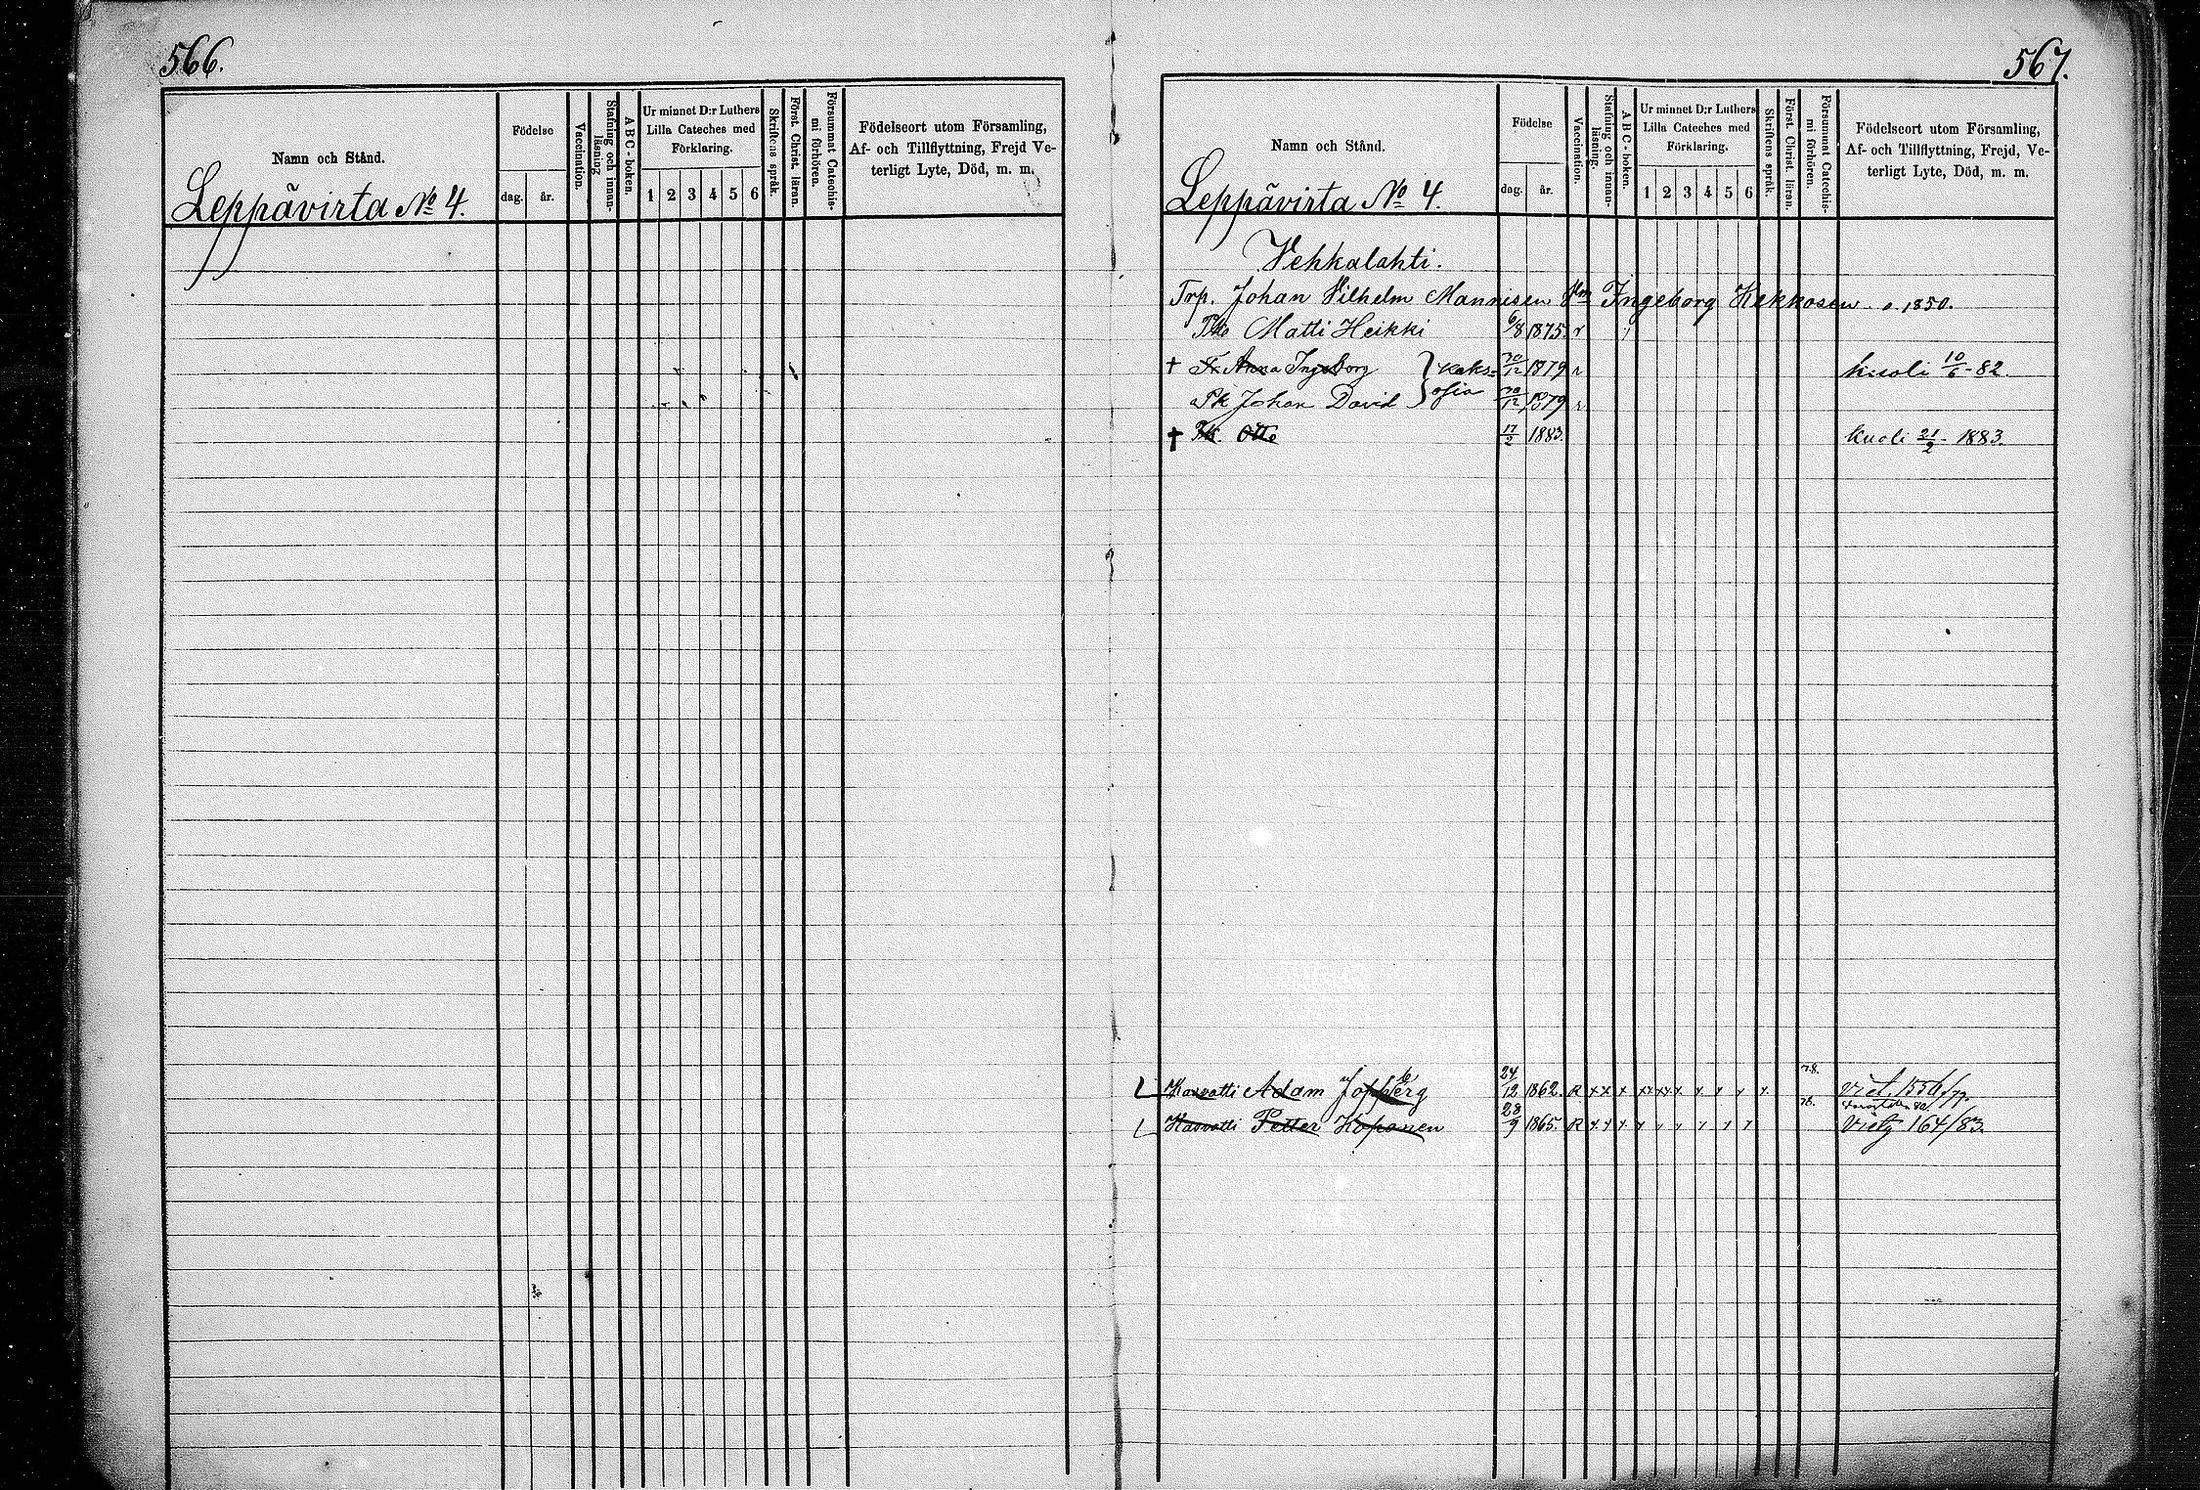 566.
Namn och Stånd.
Leppävirta No 4.
Födelse
dag. år.
Vaccination.
Stafning och innanläsning
ABC-boken.
Ur minnet D:r Luthers
Lilla Cateches med
Förklaring.
1 2 3 4 5 6
Skriftens språk.
Först. Christ. läran.
Försummat Catechismi förhören.
Födelseort utom Församling,
Af- och Tillflyttning, Frejd Ve-
terligt Lyte, Död, m. m.
567.
Namn och Stånd.
Leppävirta No 4.
Födelse
dag. år.
Vaccination.
Stafning och innanläsning.
ABC-boken.
Ur minnet D:r Luthers
Lilla Cateches med
Förklaring.
1 2 3 4 5 6
Skriftens språk.
Först. Christ. läran.
Försummat Catechismi förhören.
Födelseort utom Församling,
Af- och Tillflyttning, Frejd, Ve-
terligt Lyte, Död, m. m.
Vehkalahti.
Trp. Johan Vilhelm Manninen Ingeborg Kekkosen s. 1850.
Matti Heikki 6/8 1875. r
† Anna Ingeborg } Kaks= 30/12 1879 r kuoli 10/6 - 82.
Pk Johan David } osia 30/12 1879 r
† Pk. Otto 17/2 1883. Kuoli 21/2 - 1883.
Kasvatti Adam 24/12 1862. R x x x x x x x x x x x 78.
Kasvatti Petter Koponen 28/9 1865. R x x x x x x x x x 78. 164/83.